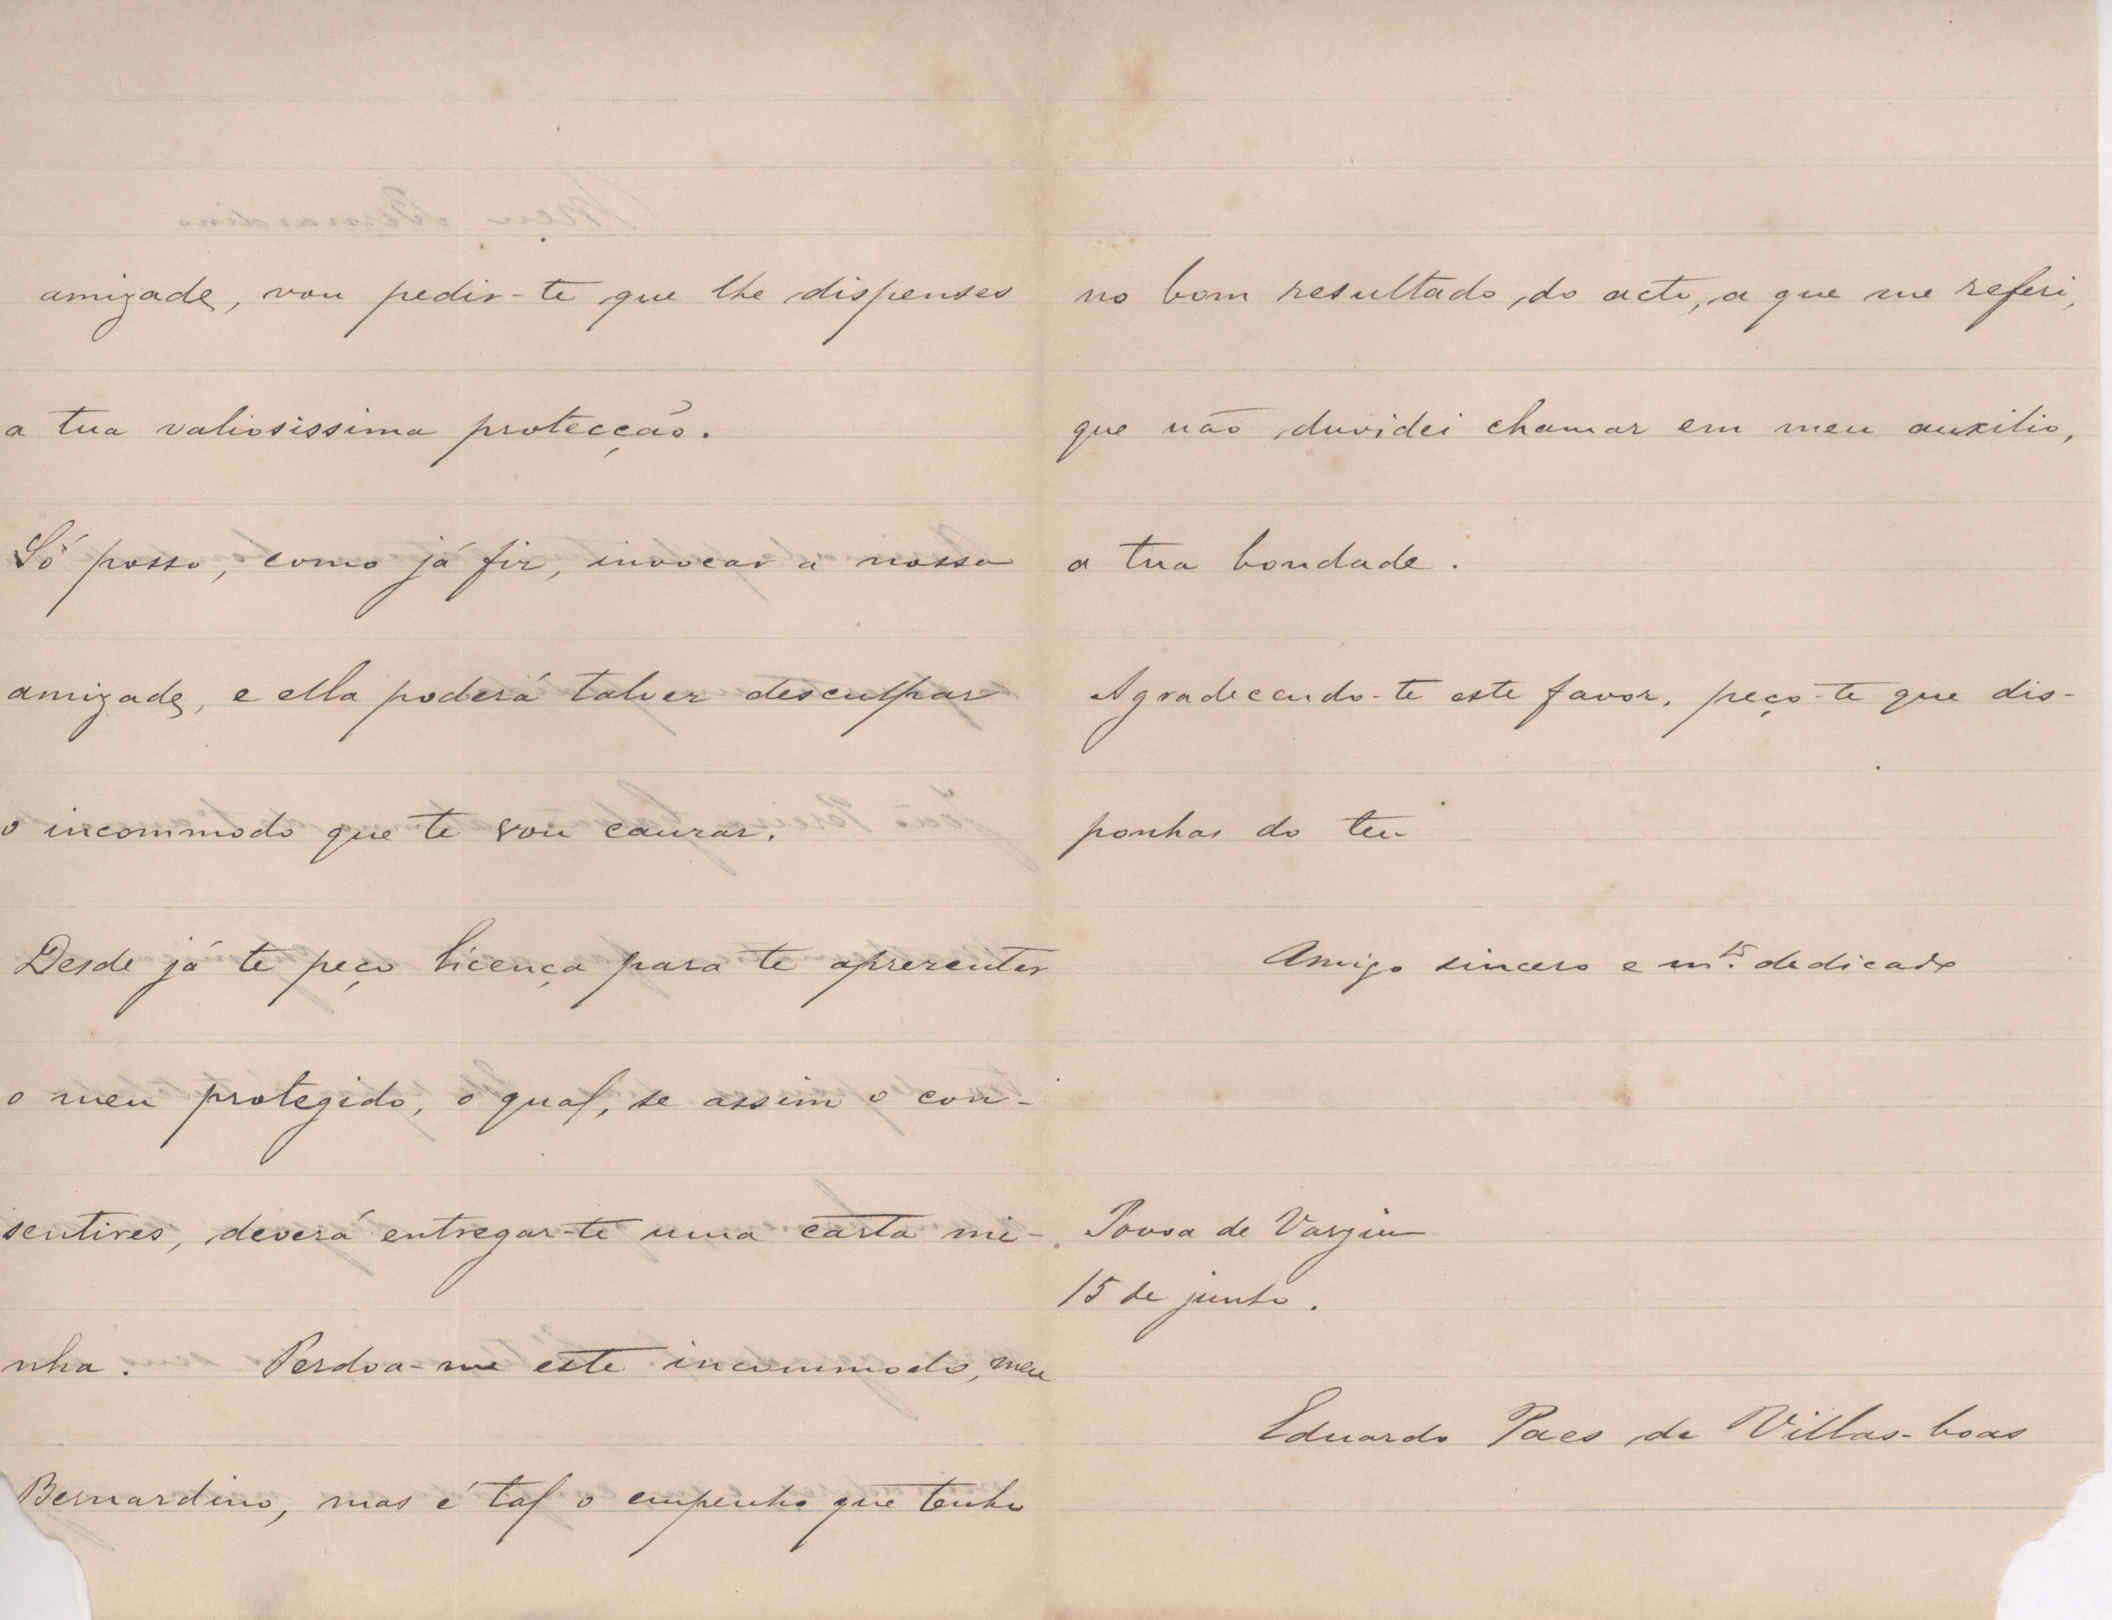 amizade, vou pedir-te que lhe dispenses
a tua valiosissima protecção.
Só posso, como já fiz, invocar a nossa
amizade, e ella poderá talvez desculpar
o incommodo que te vou cauzar.
Desde já te peço licença para te aprezentar
o meu protegido, o qual, se assim o con-
sentires, deverá entregar-te uma carta mi-
nha. Perdoa-me este incommodo, meu
Bernardino, mas é tal o empenho que tenho
no bom resultado do acto, a que me referi,
que não duvidei chamar em meu auxilio,
a tua bondade.
Agradecendo-te este favor, peço-te que dis-
ponhas do teu
Amigo sincero e mto. dedicado
Povoa de Varzim
15 de junho.
Eduardo Paes de Villas-boas